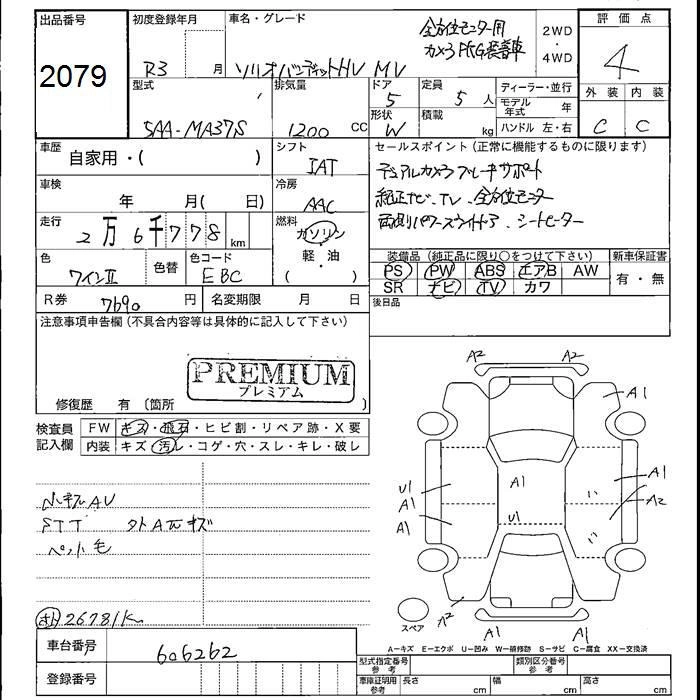 出品番号
2079
初度登録年月
R3 月
車名・グレード
ソリオバンディットHV MV
全方位モニター用
カメラPKG装着車
2WD
・
4WD
評価点
4
外装 内装
C C
型式
5AA-MA37S
排気量
1200 CC
ドア
5
形状
W
定員
5 人
積載
kg
ディーラー・並行
モデル年式 年
ハンドル 左・右
車歴
自家用・( )
シフト
IAT
車検
年 月( 日)
冷房
AAC
走行
2万6千778 km
燃料
ガソリン
・
軽・油
( )
色
ワインⅡ
色替
色コード
EBC
R券
7690 円
名変期限 月 日
セールスポイント(正常に機能するものに限ります)
デュアルカメラブレーキサポート
純正ナビ、TV、全方位モニター
両側パワースライドドア、シートヒーター
装備品(純正品に限り○をつけて下さい)
PS PW ABS エアB AW
SR ナビ TV カワ
新車保証書
有・無
後日品
注意事項申告欄(不具合内容等は具体的に記入して下さい)
PREMIUM
プレミアム
修復歴 有 (箇所 )
検査員
記入欄
FW キズ・飛石・ヒビ割・リペア跡・X要
内装 キズ・汚レ・コゲ・穴・スレ・キレ・破レ
小キズAU
FTT 外トAエキズ
ペット毛
26781K
A2 A2
A1
U1
A1
A1
A1
U1
A1
A2
A2
A1
A1
スペア
A−キズ E−エクボ U−凹み W−補修跡 S−サビ C−腐食 XX−交換済
車台番号
606262
登録番号
型式指定番号
参考
類別区分番号
参考
車庫証明用
参考
長さ cm 幅 cm 高さ cm